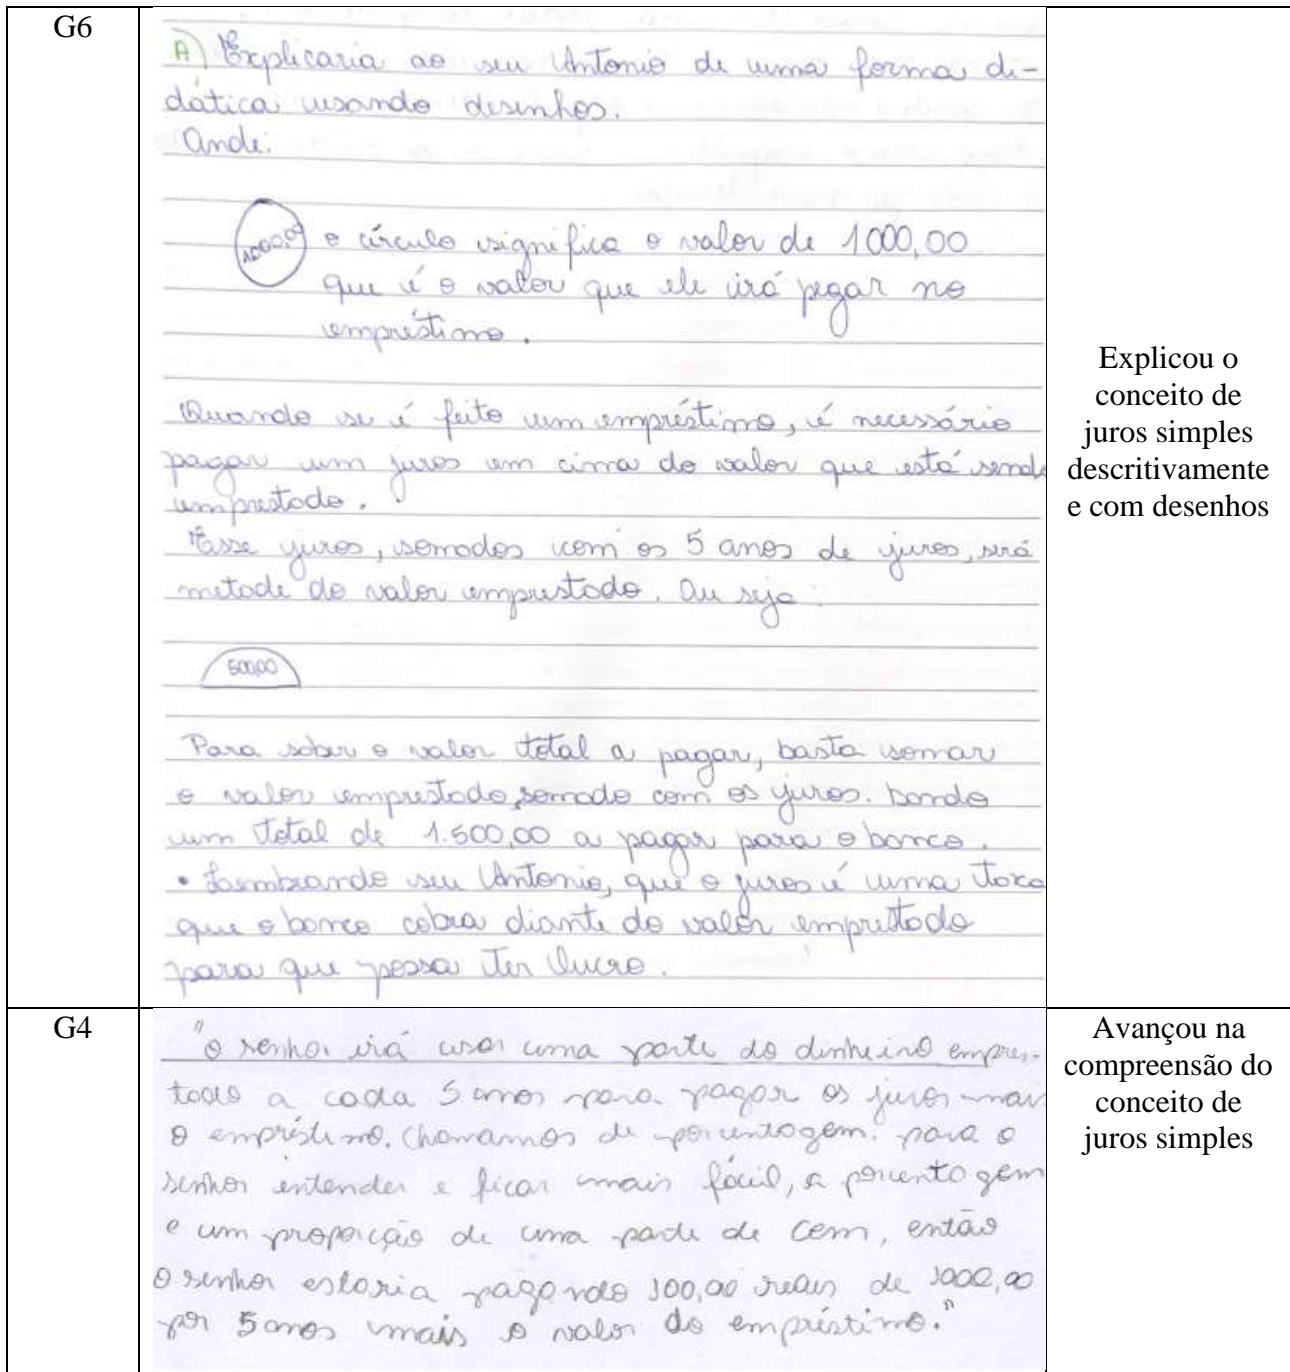 G6
A) Explicaria ao seu Antonio de uma forma di-
dática usando desenhos.
Onde:
1000,00 o círculo significa o valor de 1000,00
que é o valor que ele irá pegar no
empréstimo.
Quando se é feito um empréstimo, é necessário
pagar um juros em cima do valor que está sendo
emprestado.
Esse juros, somados com os 5 anos de juros, será
metade do valor emprestado. Ou seja:
500,00
Para saber o valor total a pagar, basta somar
o valor emprestado, somado com os juros. Dando
um total de 1.500,00 a pagar para o banco.
• Lembrando seu Antonio, que o juros é uma taxa
que o banco cobra diante do valor emprestado
para que possa ter lucro.
Explicou o
conceito de
juros simples
descritivamente
e com desenhos
G4
"o senhor irá usar uma parte do dinheiro empres-
tado a cada 5 anos para pagar os juros mais
o empréstimo. Chamamos de porcentagem. para o
senhor entender e ficar mais fácil, a porcentagem
e um proporção de uma parte de cem, então
o senhor estaria pagando 100,00 reais de 1000,00
por 5 anos mais o valor do empréstimo."
Avançou na
compreensão do
conceito de
juros simples